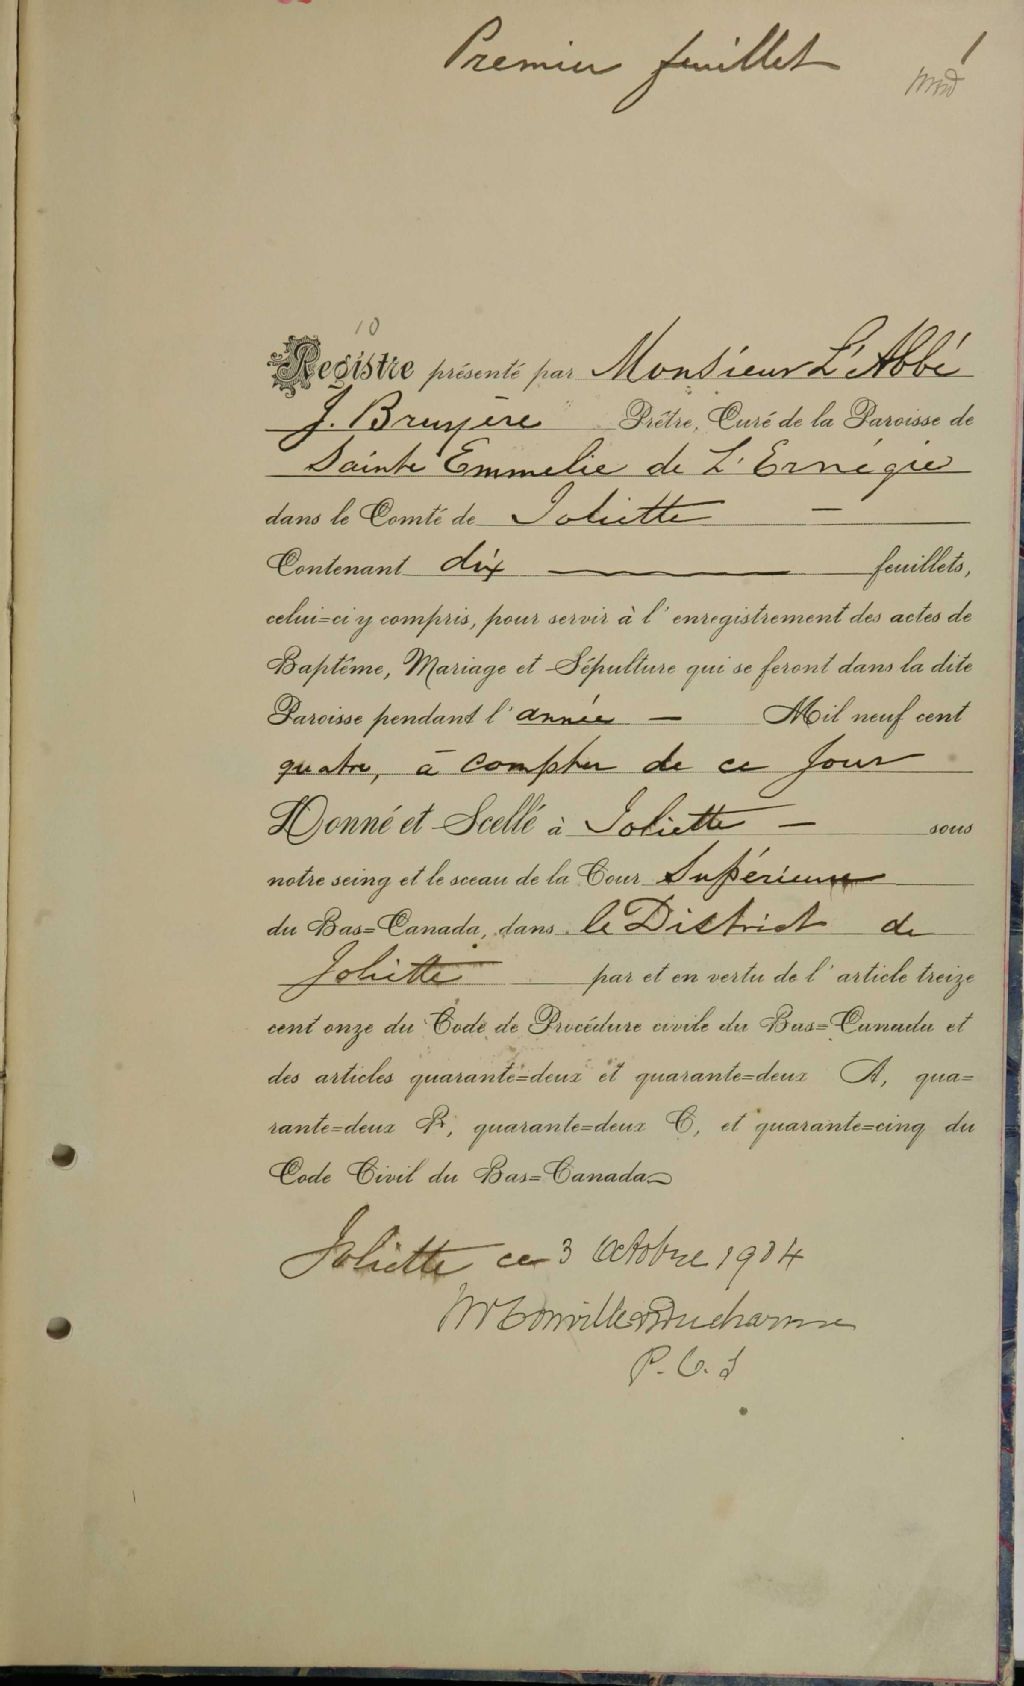 Premier feuillet 1
10
Registre présenté par Monsieur L'Abbé
J. Bruyère Prêtre, Curé de la Paroisse de
Sainte Emmelie de L'Ernégie
dans le Comté de Joliette —
Contenant dix — feuillets,
celui=ci y compris, pour servir à l'enregistrement des actes de
Baptême, Mariage et Sépulture qui se feront dans la dite
Paroisse pendant l'année — Mil neuf cent
quatre, à compter de ce jour
Donné et Scellé à Joliette — sous
notre seing et le sceau de la Cour Supérieure
du Bas=Canada, dans le District de
Joliette par et en vertu de l'article treize
cent onze du Code de Procédure civile du Bas=Canada et
des articles quarante=deux et quarante=deux A, qua=
rante=deux B, quarante=deux C, et quarante=cinq du
Code Civil du Bas=Canada
Joliette ce 3 Octobre 1904
Ducharme
P. C. S